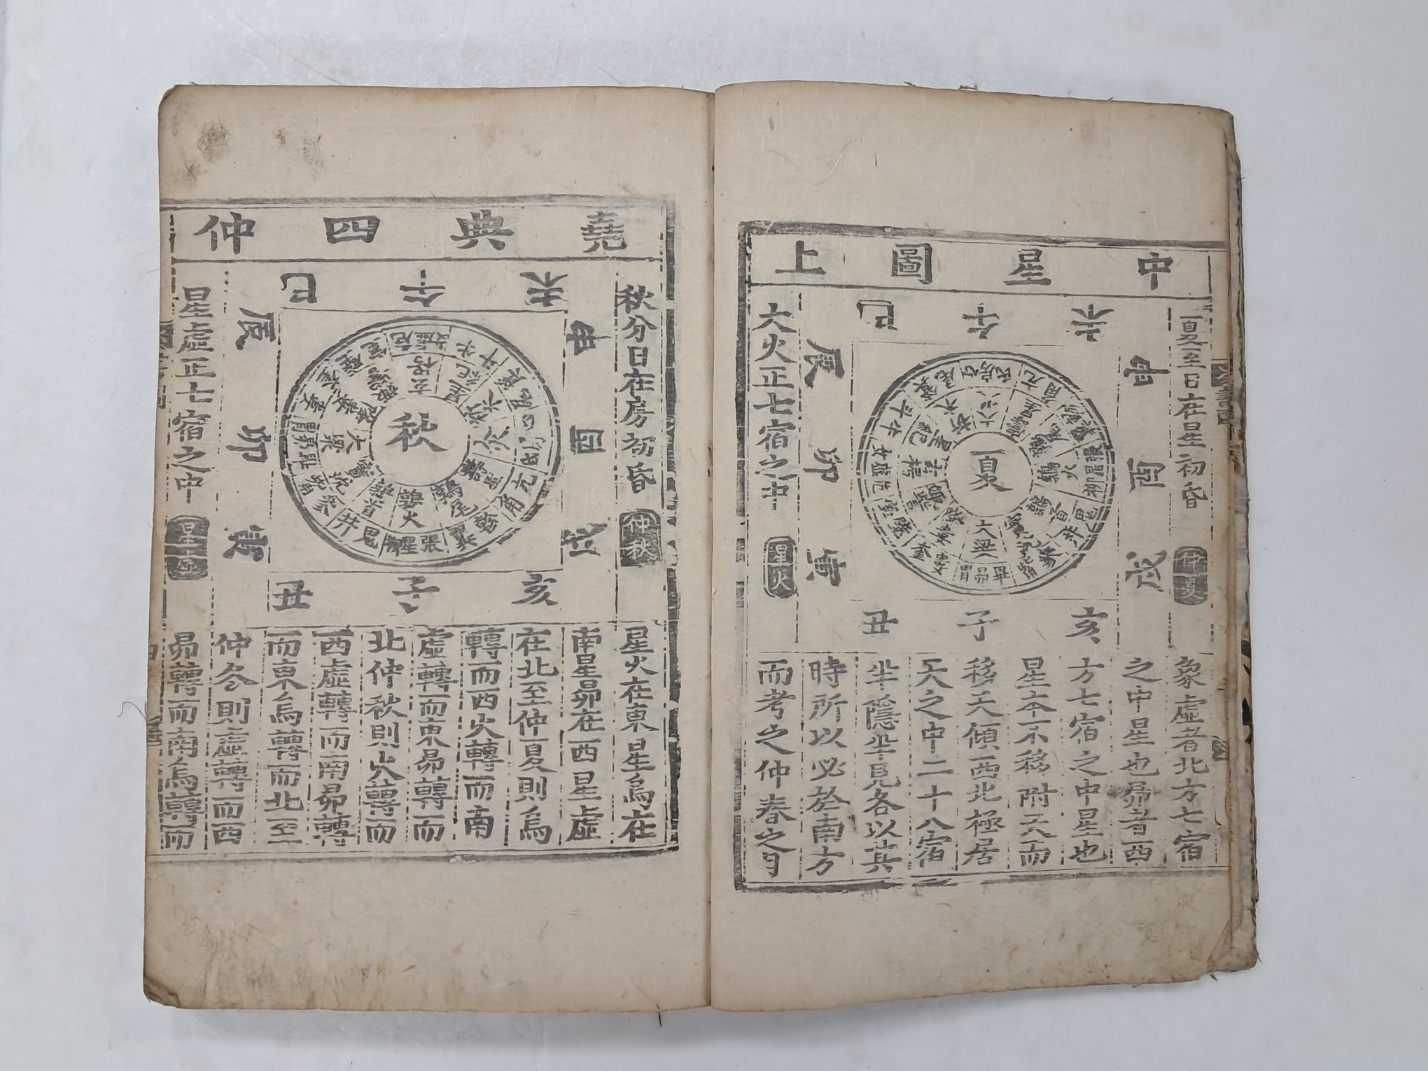 中星圖上
夏至日在星初昏
仲夏
未午巳
申酉戌
辰卯寅
夏
大梁
昴畢
亥子丑
大火正七宿之中
星火
象虛者北方七宿
之中星也昴者西
方七宿之中星也
星本不移附天而
移天傾西北極居
天之中二十八宿
半隱半見各以其
時所以必於南方
而考之仲春之月
堯典四仲
秋分日在房初昏
仲秋
未午巳
申酉戌
辰卯寅
秋
鶉火
大梁
張星
亥子丑
星虛正七宿之中
星虛
星火在東星鳥在
南星昴在西星虛
在北至仲夏則鳥
轉而西火轉而南
虛轉而東昴轉而
北仲秋則火轉而
西虛轉而南昴轉
而東鳥轉而北至
仲冬則虛轉而西
昴轉而南鳥轉而